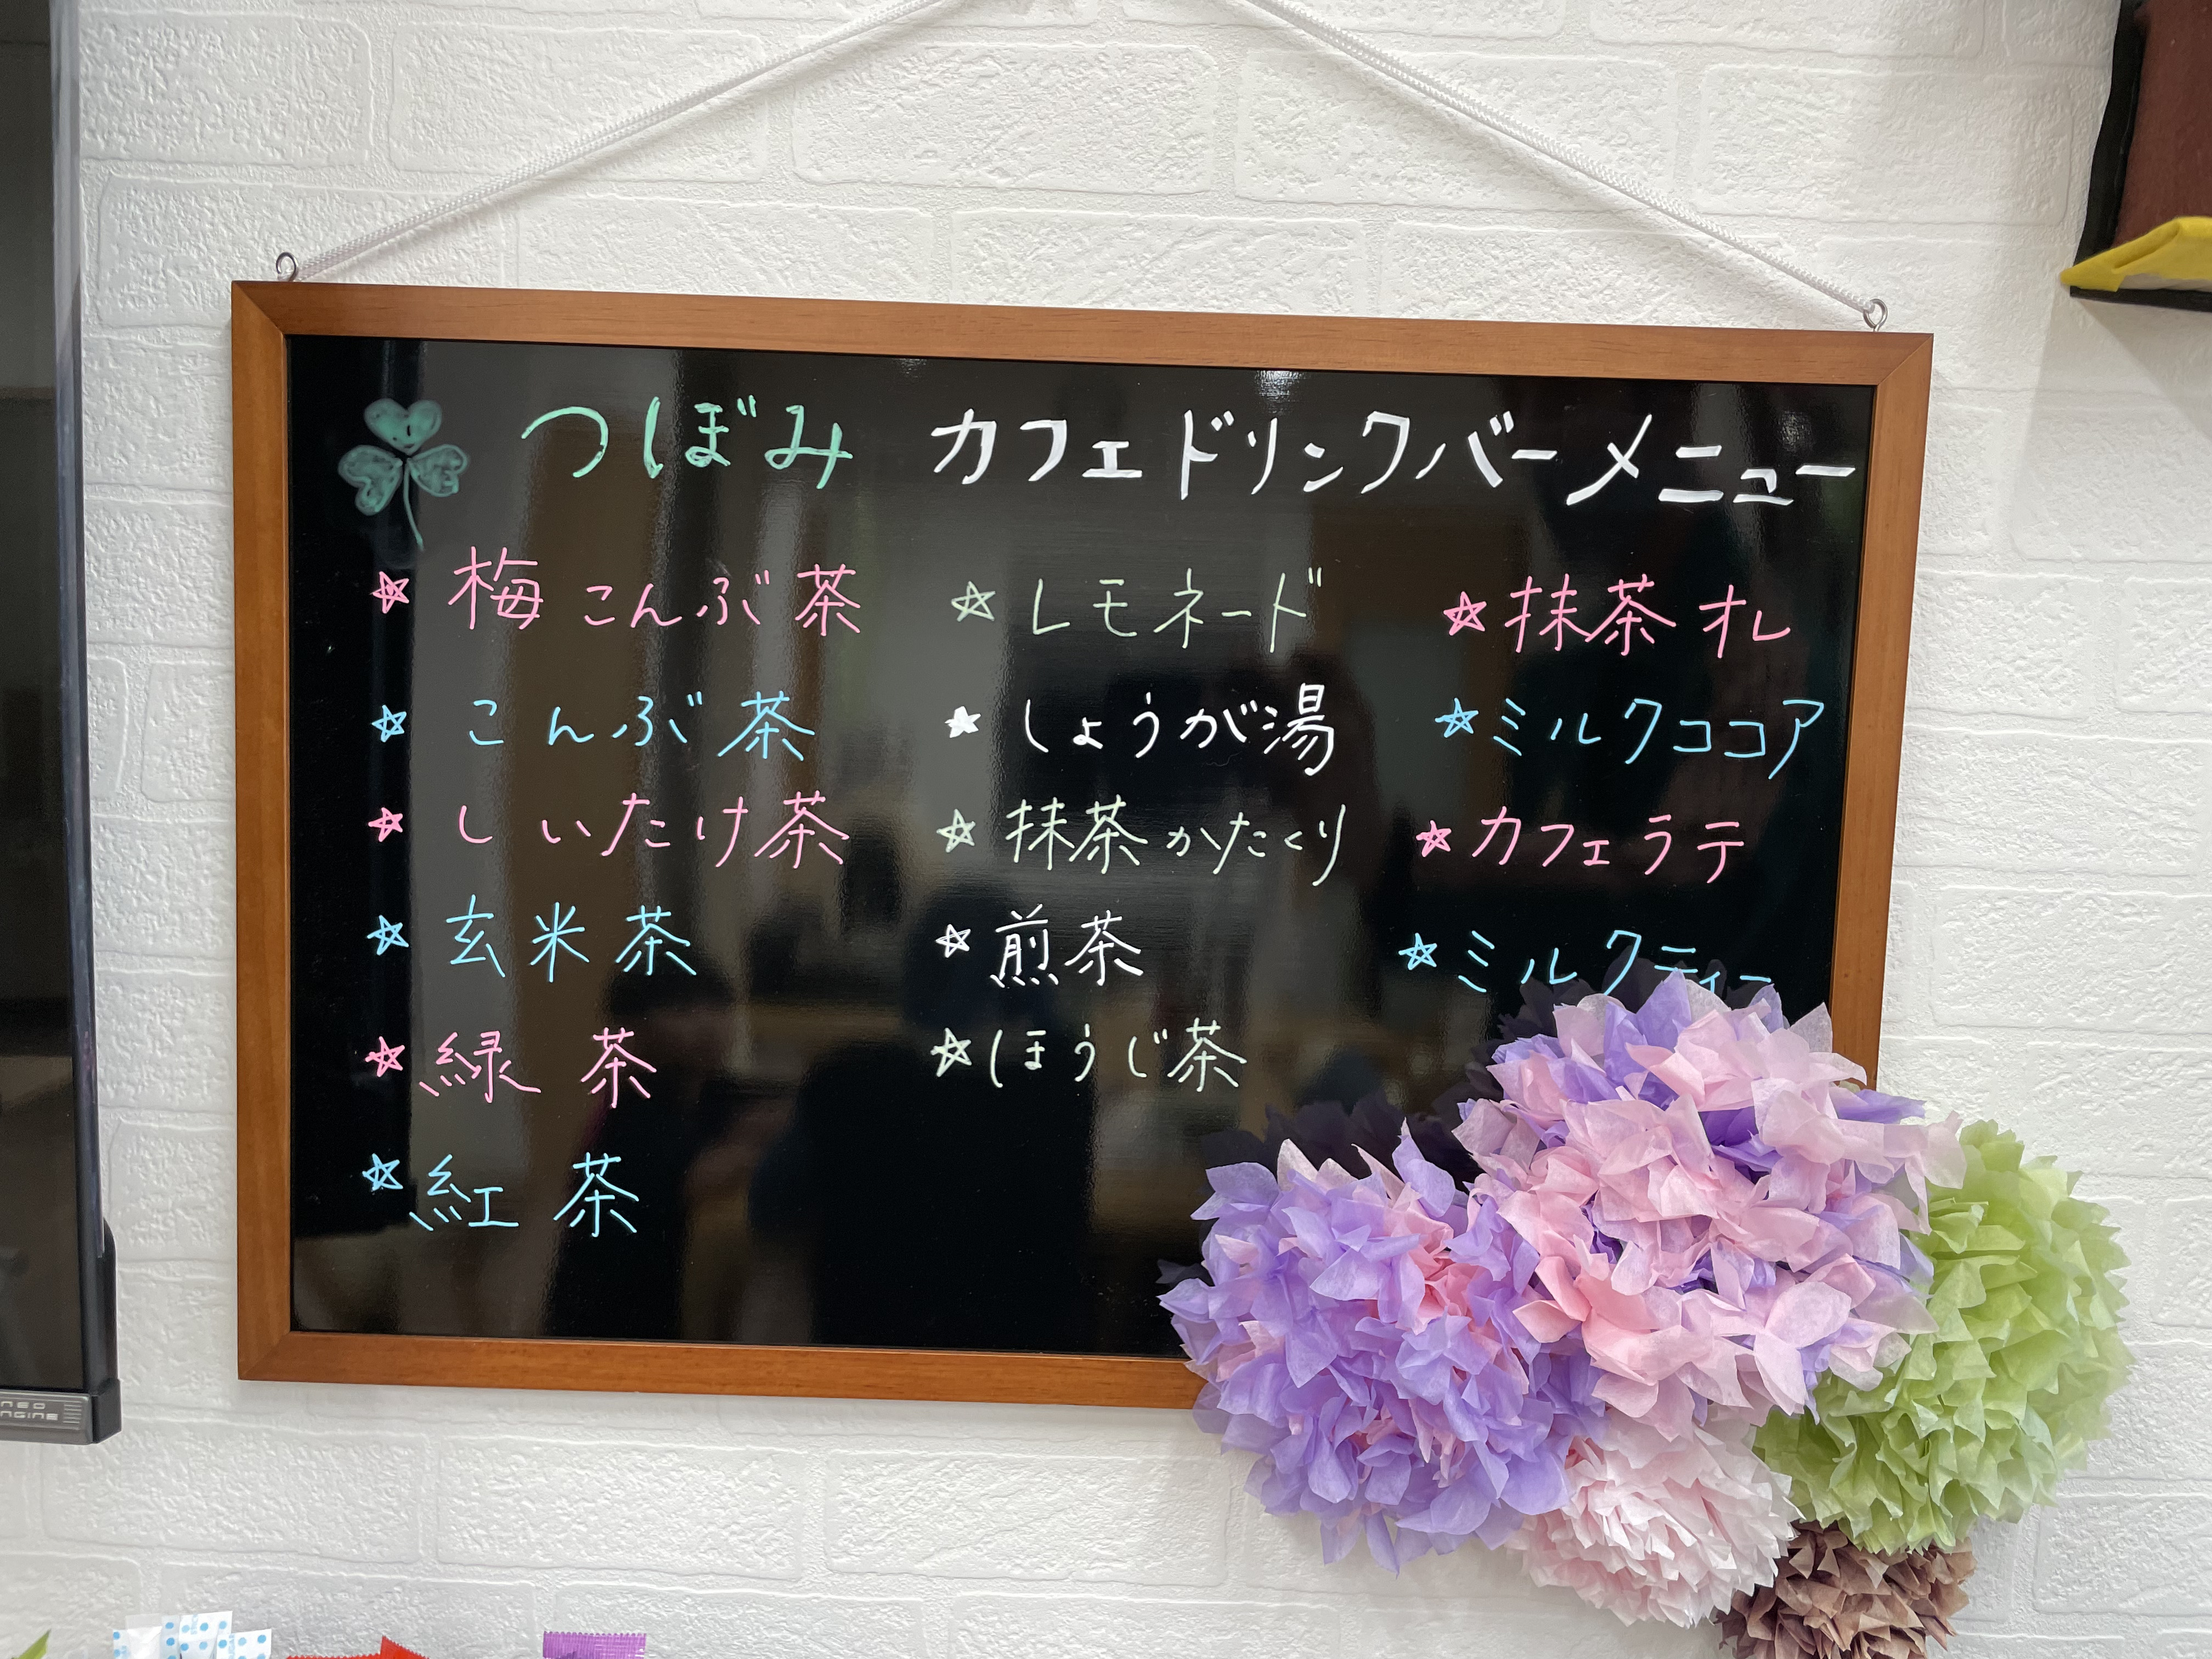 つぼみ カフェドリンクバーメニュー
☆ 梅こんぶ茶
☆ こんぶ茶
☆ しいたけ茶
☆ 玄米茶
☆ 緑茶
☆ 紅茶
☆ レモネード
★ しょうが湯
☆ 抹茶かたくり
☆ 煎茶
☆ ほうじ茶
☆ 抹茶オレ
☆ ミルクココア
☆ カフェラテ
☆ ミルクティー
NEO
NGINE